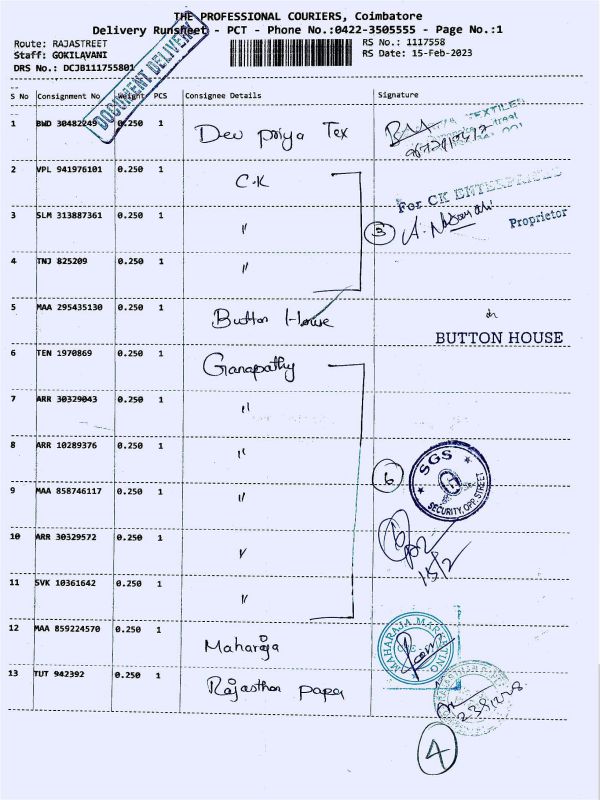 THE PROFESSIONAL COURIERS, Coimbatore
Delivery Runsheet - PCT - Phone No.:0422-3505555 - Page No.:1
Route: RAJASTREET
RS No.: 1117558
Staff: GOKILAVANI
RS Date: 15-Feb-2023
DRS No.: DCJB111755801
DOCUMENT DELIVERY
S No Consignment No Weight PCS Consignee Details Signature
1 BWD 30482249 0.250 1 Dev priya Tex
TEXTILES
2 VPL 941976101 0.250 1 C.K
For CK ENTERPRISES
3 SLM 313887361 0.250 1 〃 3
Proprietor
4 TNJ 825209 0.250 1 〃
5 MAA 295435130 0.250 1 Button House
BUTTON HOUSE
6 TEN 1970869 0.250 1 Ganapathy
7 ARR 30329043 0.250 1 〃
8 ARR 10289376 0.250 1 〃 6
SGS
SECURITY, OPP. STREET
9 MAA 858746117 0.250 1 〃
10 ARR 30329572 0.250 1 〃
15/2
11 SVK 10361642 0.250 1 〃
12 MAA 859224570 0.250 1 Maharaja
MAHARAJA MARKETING
CBE
13 TUT 942392 0.250 1 Rajasthan paper
4